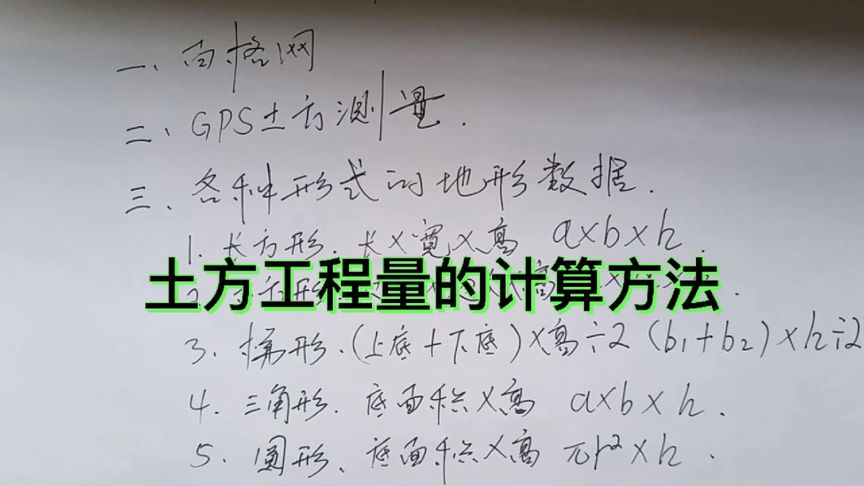 一、方格网
二、GPS土方测量.
三、各种形式的地形数据.
1. 长方形. 长×宽×高 a×b×h.
土方工程量的计算方法
3. 梯形.(上底+下底)×高÷2 (b₁+b₂)×h÷2
4. 三角形. 底面积×高 a×b×h.
5. 圆形、底面积×高 πr²×h.